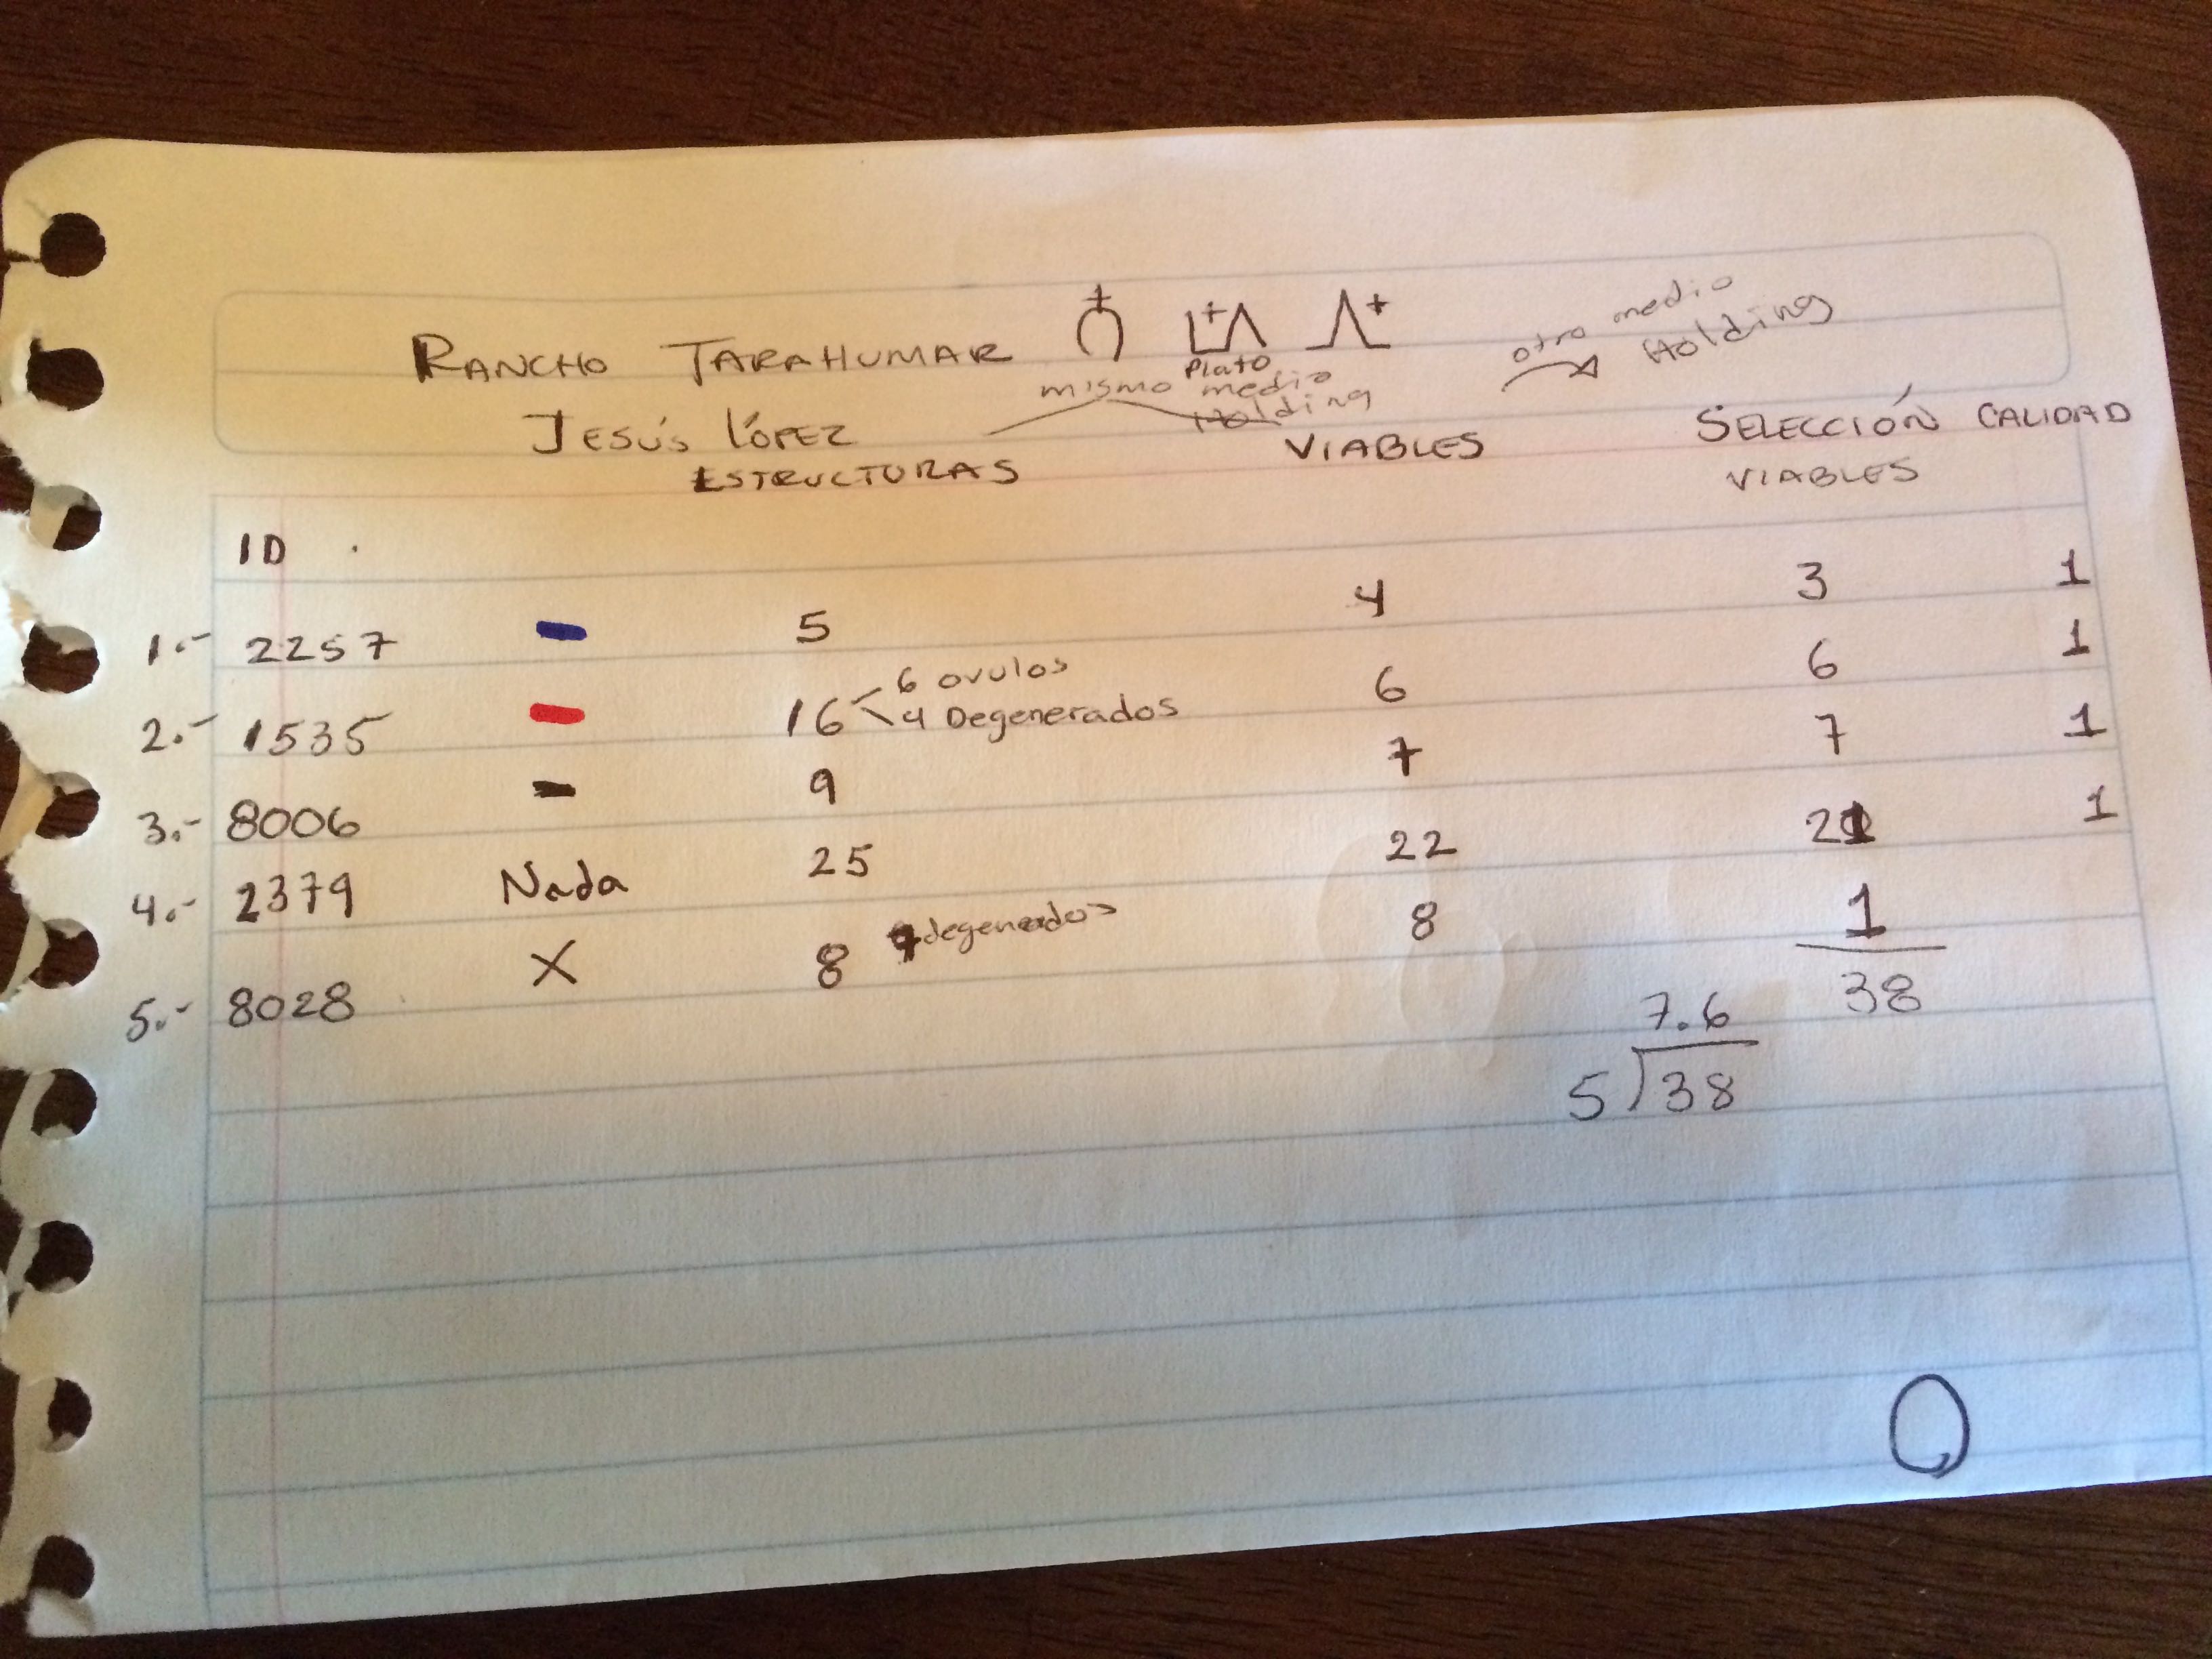 RANCHO TARAHUMAR
Plato
mismo medio
Holding
otro medio
Holding
JESÚS LÓPEZ
ESTRUCTURAS VIABLES SELECCIÓN CALIDAD
VIABLES
ID
1.- 2257 5 4 3 1
6 ovulos
2.- 1535 16 6 6 1
4 Degenerados
3.- 8006 9 7 7 1
4.- 2379 Nada 25 22 21 1
5.- 8028 X 8 7 degenedos 8 1
38
7.6
5 38